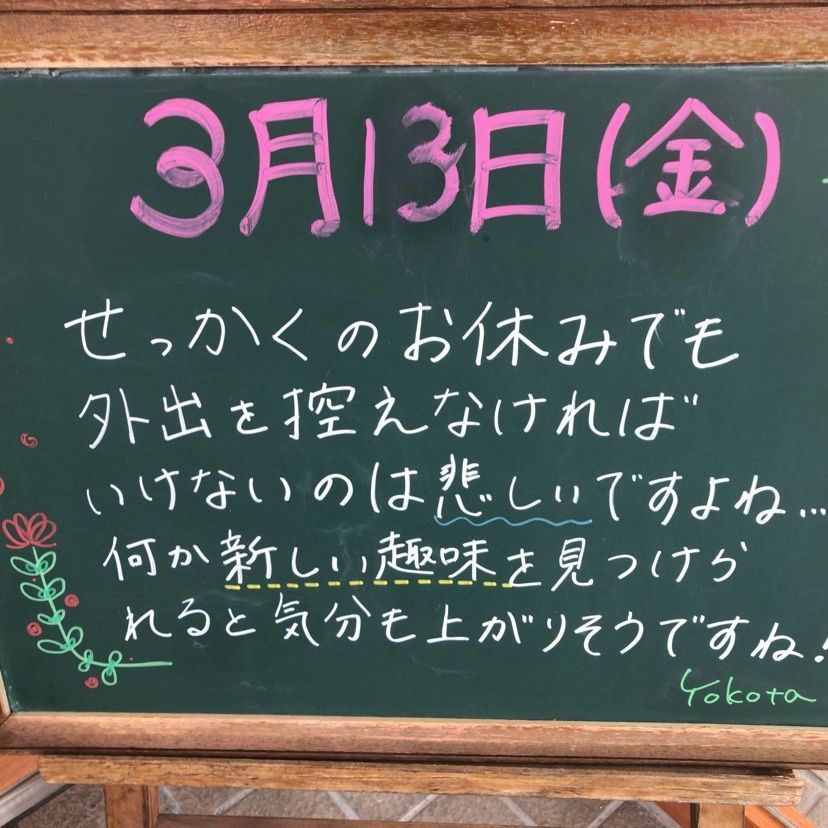 3月13日(金)
せっかくのお休みでも
外出を控えなければ
いけないのは悲しいですよね...
何か新しい趣味を見つけら
れると気分も上がりそうですね!
Yokota